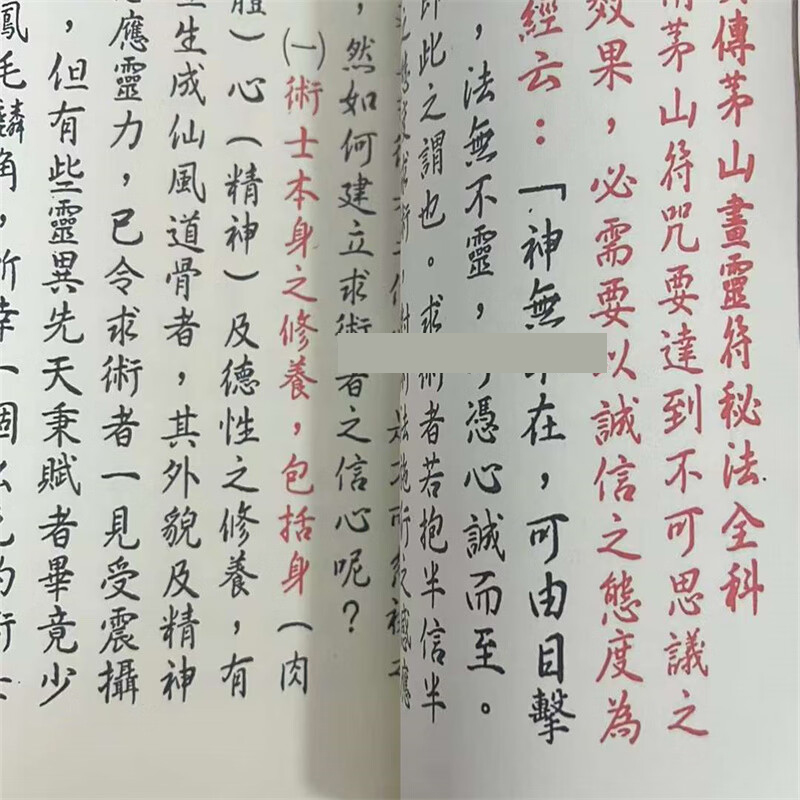 傳茅山畫靈符秘法全科
茅山符咒要達到不可思議之
效果，必需要以誠信之態度為
經云：「神無在，可由目擊
，法無不靈，憑心誠而至。
即此之謂也。求術者若抱半信半
，然如何建立求術者之信心呢？
㈠術士本身之修養，包括身（肉
體）心（精神）及德性之修養，有
生成仙風道骨者，其外貌及精神
應靈力，已令求術者一見受震攝
，但有些靈異先天秉賦者畢竟少
鳳毛麟角，所幸一個